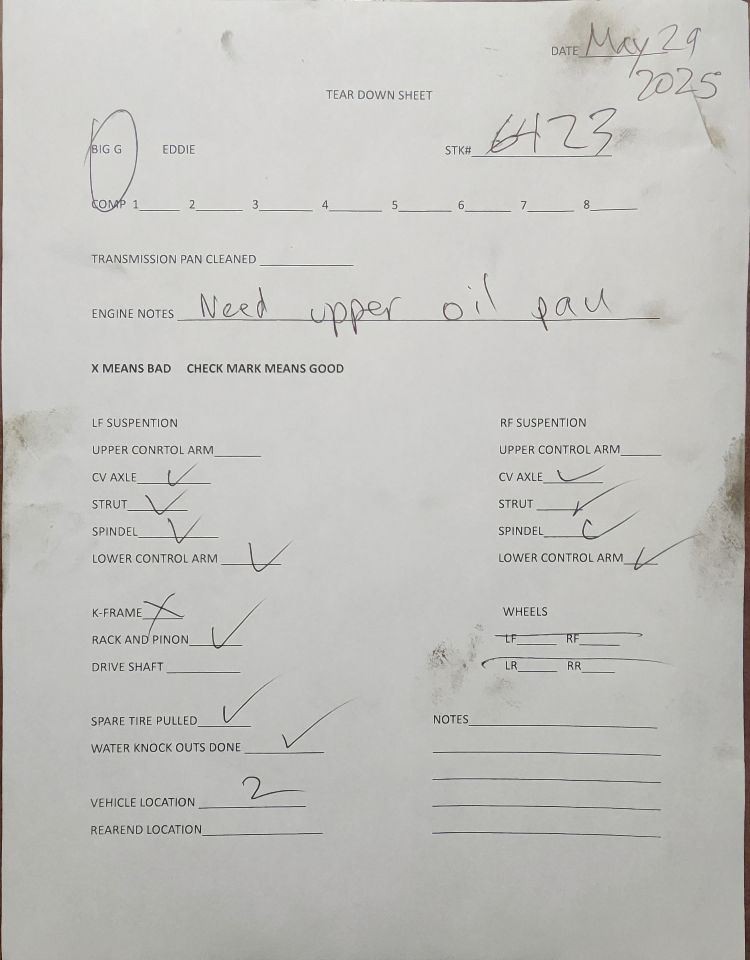 DATE May 29
2025
TEAR DOWN SHEET
BIG G EDDIE STK# 6423
COMP 1 2 3 4 5 6 7 8
TRANSMISSION PAN CLEANED
ENGINE NOTES Need upper oil pan
X MEANS BAD CHECK MARK MEANS GOOD
LF SUSPENTION RF SUSPENTION
UPPER CONRTOL ARM UPPER CONTROL ARM
CV AXLE ✓ CV AXLE ✓
STRUT ✓ STRUT ✓
SPINDEL ✓ SPINDEL ✓
LOWER CONTROL ARM ✓ LOWER CONTROL ARM ✓
K-FRAME X WHEELS
RACK AND PINON ✓ LF RF
DRIVE SHAFT LR RR
SPARE TIRE PULLED ✓ NOTES
WATER KNOCK OUTS DONE ✓
VEHICLE LOCATION 2
REAREND LOCATION